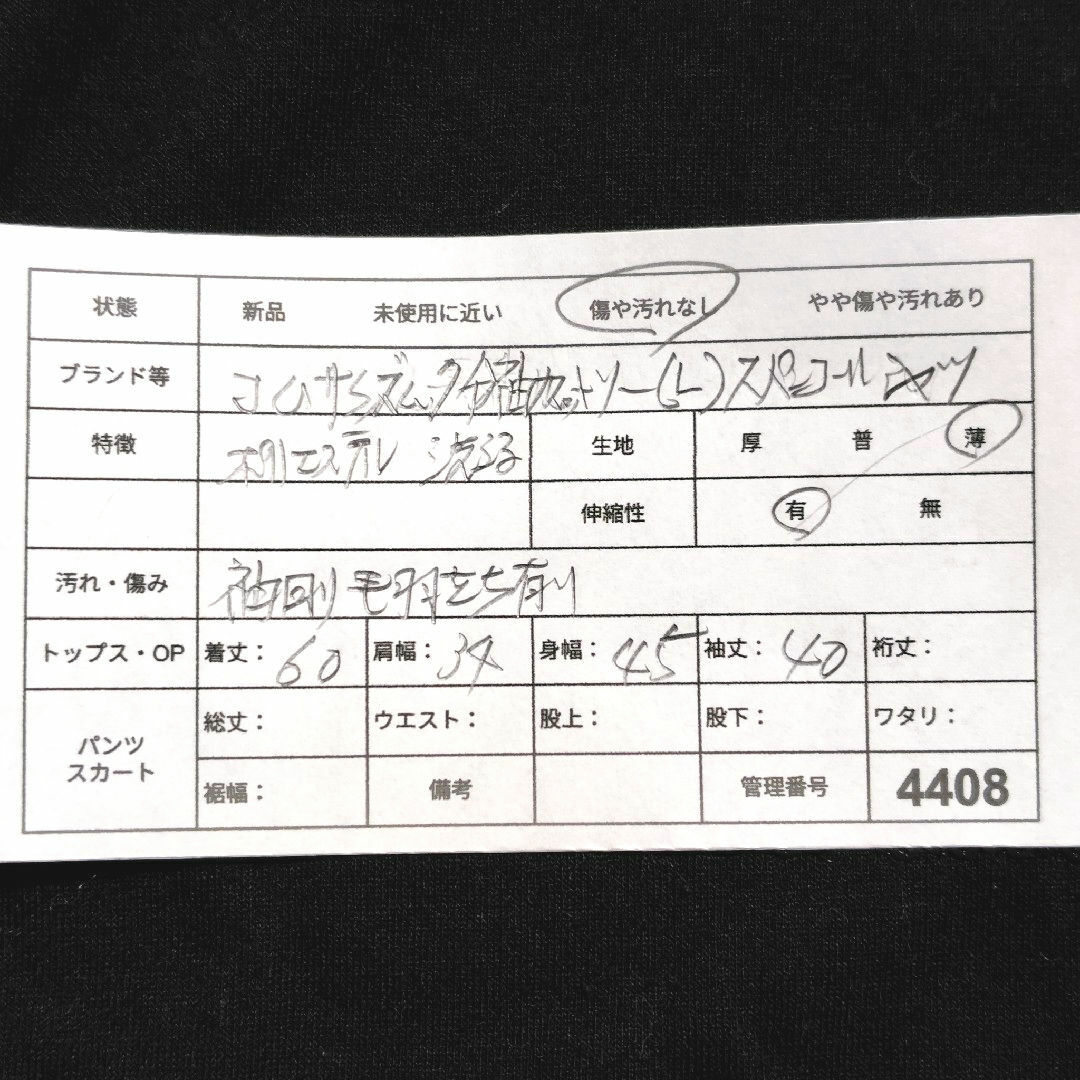 状態 新品 未使用に近い 傷や汚れなし やや傷や汚れあり
ブランド等 コムサイズム 七分袖カットソー(L)スパンコール シャツ
特徴 ポリエステル 洗える 生地 厚 普 薄
伸縮性 有 無
汚れ・傷み 袖周り 毛羽立ち有り
トップス・OP 着丈: 60 肩幅: 34 身幅: 45 袖丈: 40 裄丈:
パンツ スカート 総丈: ウエスト: 股上: 股下: ワタリ:
裾幅: 備考 管理番号 4408